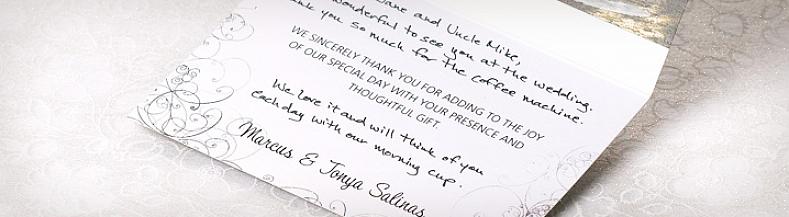 Jane and Uncle Mike,
wonderful to see you at the wedding.
you so much for the coffee machine.
WE SINCERELY THANK YOU FOR ADDING TO THE JOY
OF OUR SPECIAL DAY WITH YOUR PRESENCE AND
THOUGHTFUL GIFT.
We love it and will think of you
each day with our morning cup.
Marcus & Tonya Salinas